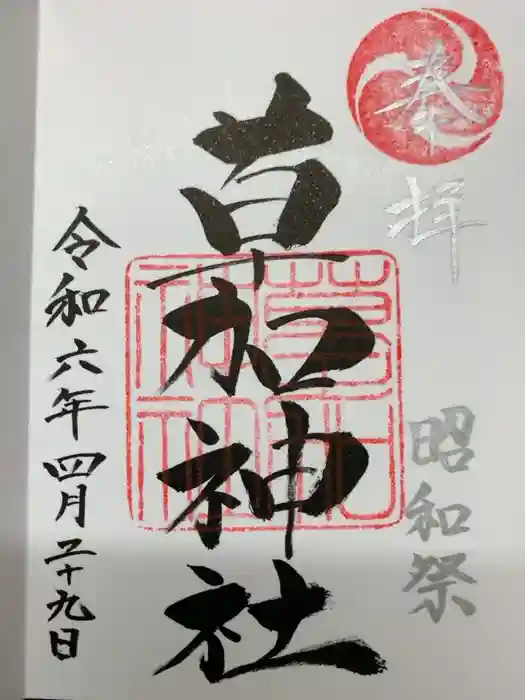 奉拝
昭和祭
草加神社
令和六年四月二十九日